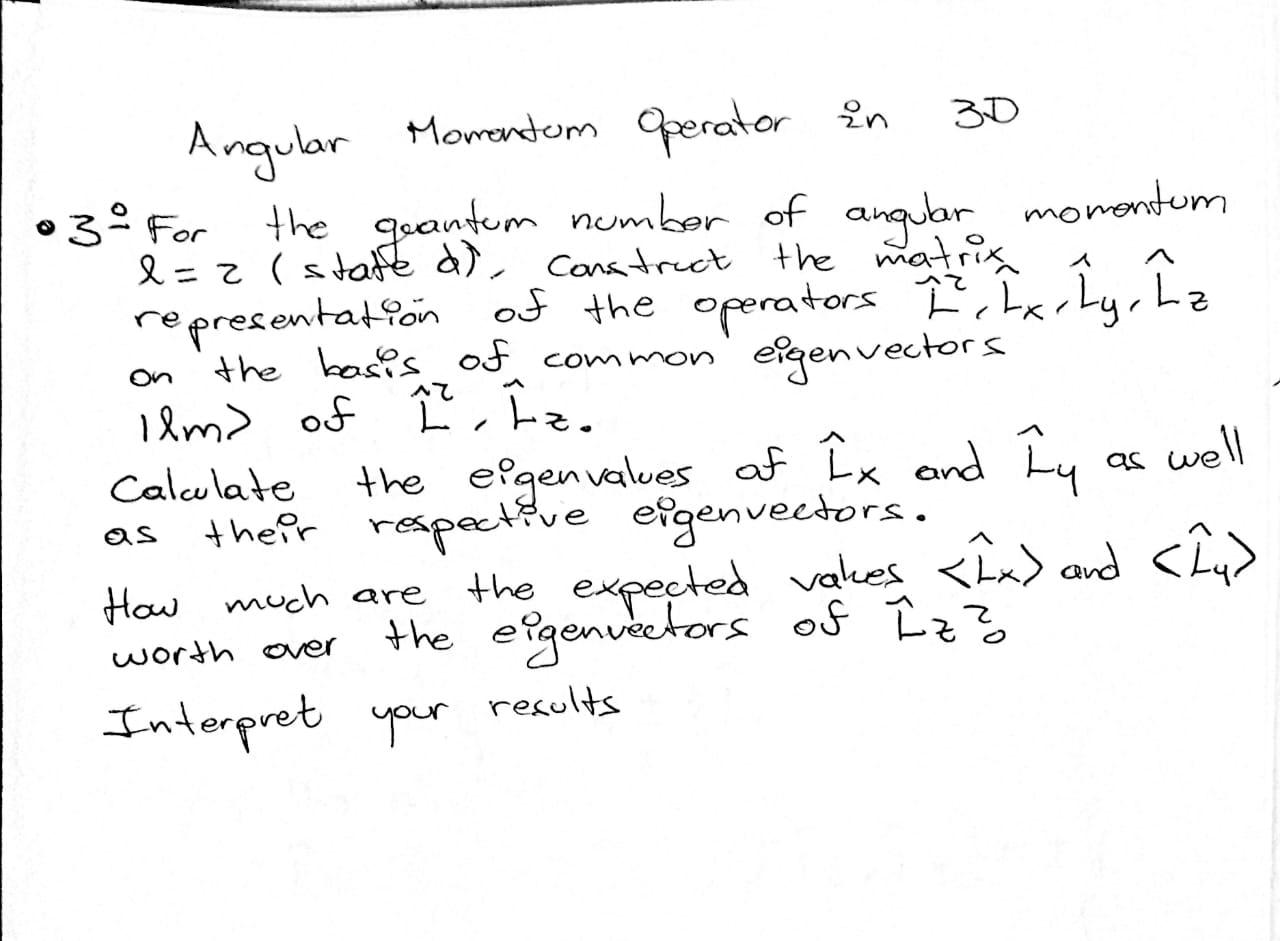 Angular Momentum Operator in 3D
• 3º For the quantum number of angular momentum
l = 2 (state d), Construct the matrix
representation of the operators L̂², L̂x, L̂y, L̂z
on the basis of common eigenvectors
|lm> of L̂², L̂z.
Calculate the eigenvalues of L̂x and L̂y as well
as their respective eigenvectors.
How much are the expected values <L̂x> and <L̂y>
worth over the eigenvectors of L̂z?
Interpret your results